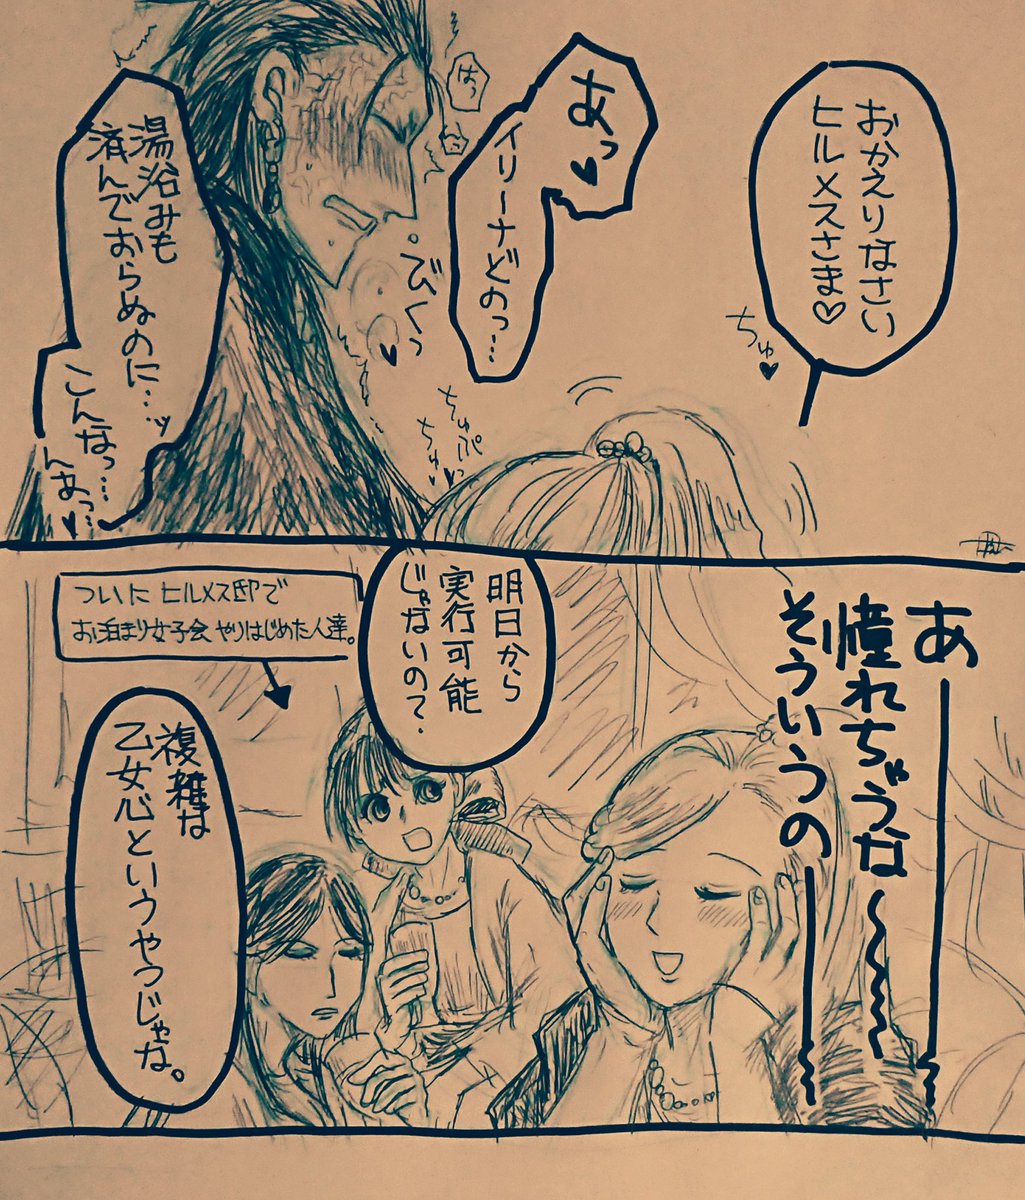 おかえりなさい
ヒルメスさま♡
ちゅ♥
あっ♥
イリーナどのっ…
はっ
びくっ
♥
ちゅパっ
ちゅ
湯浴みも
済んでおらぬのに…ッ
こんなっ…
んあっ…♥
あ
憧れちゃうな～
そういうの
明日から
実行可能
じゃないの?
ついにヒルメス邸で
お泊まり女子会やりはじめた人達。
複雑な
乙女心というやつじゃな。